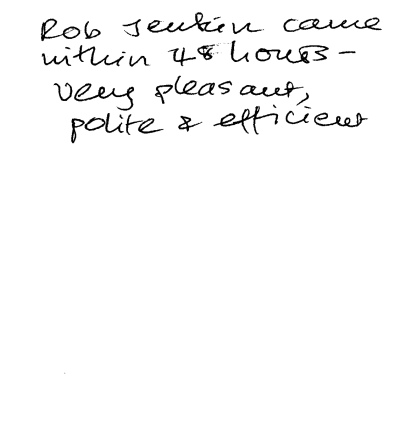 Rob Jenkin came
within 48 hours -
very pleasant,
polite & efficient